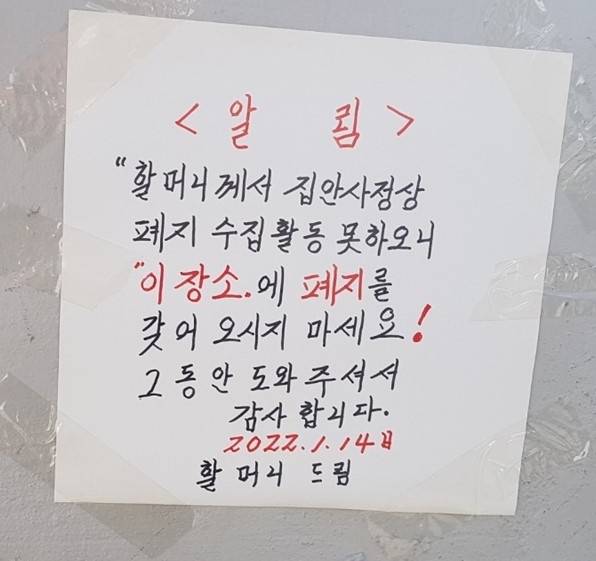 < 알 림 >
"할머니께서 집안사정상
폐지 수집활동 못하오니
"이 장소.에 폐지를
갖어 오시지 마세요!
그동안 도와주셔서
감사합니다.
2022.1.14일
할머니 드림